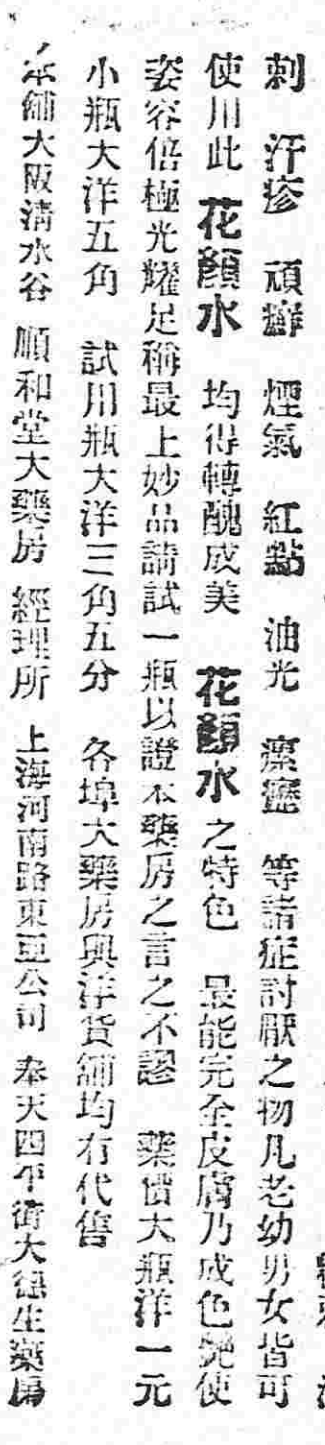 刺　汗疹　頑癬　煙氣　紅點　油光　瘰癧　等諸症討厭之物凡老幼男女皆可
使用此　花顏水　均得轉醜成美　花顏水之特色　最能完全皮膚乃成色艷使
姿容倍極光耀足稱最上妙品請試一瓶以證本藥房之言之不謬　藥價大瓶洋一元
小瓶大洋五角　試用瓶大洋三角五分　各埠大藥房與洋貨舖均有代售
本舖大阪清水谷　順和堂大藥房　經理所　上海河南路東亞公司　奉天四平街大德生藥房